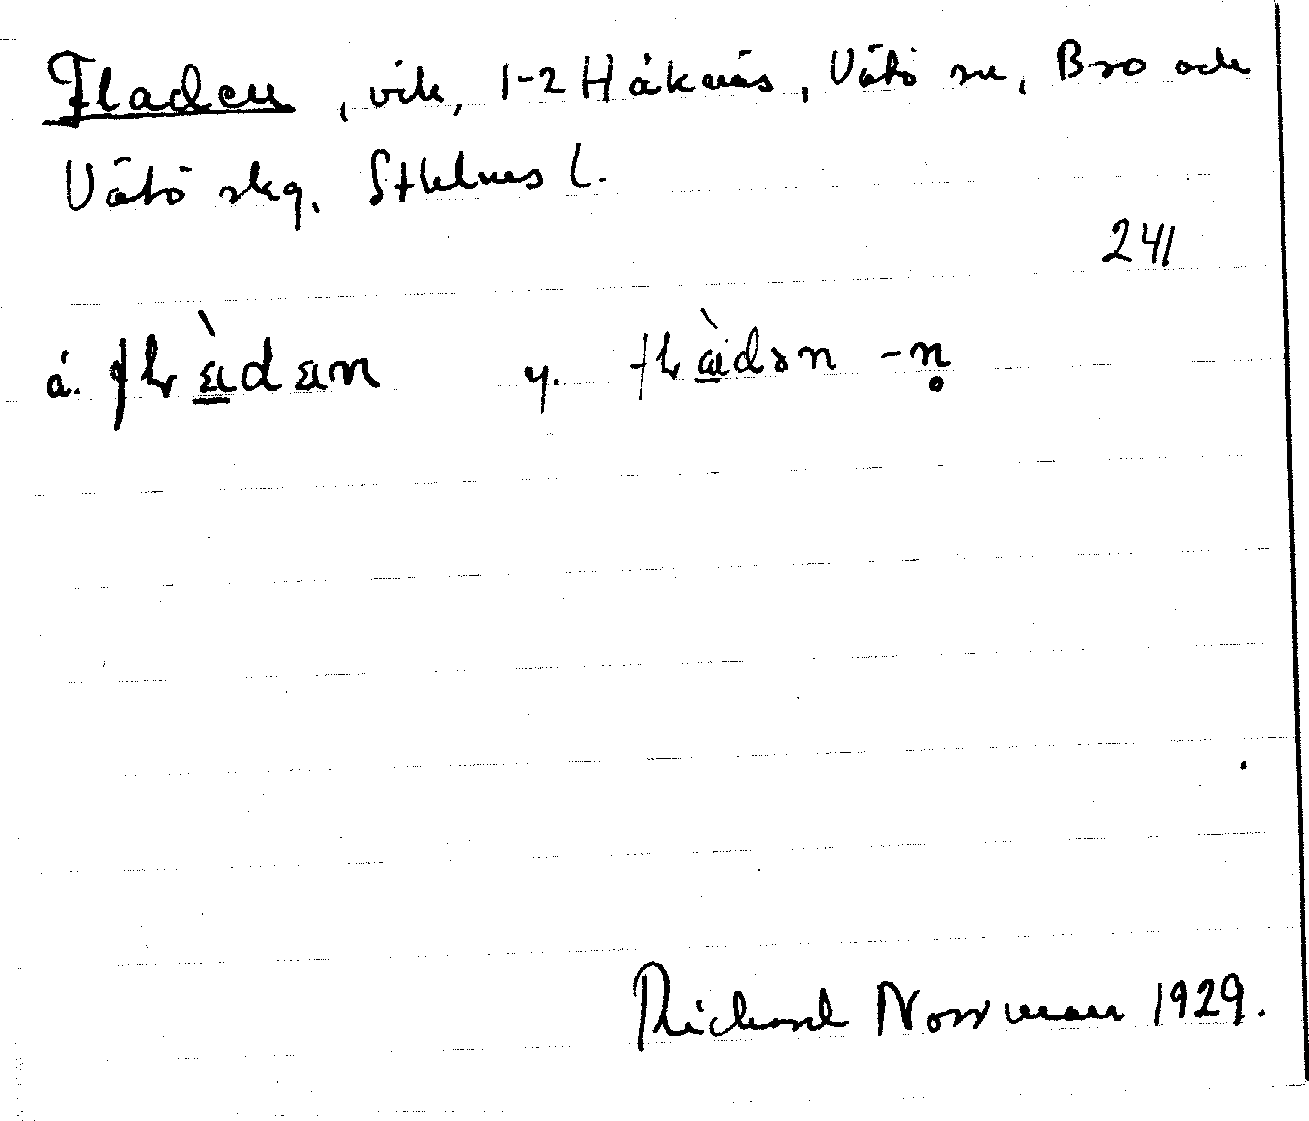 Fladen, vik, 1-2 Håknäs, Vätö sn, Bro och
Vätö skg, Sthlms l.
241
ä. y. -n̥
Richard Norrman 1929.